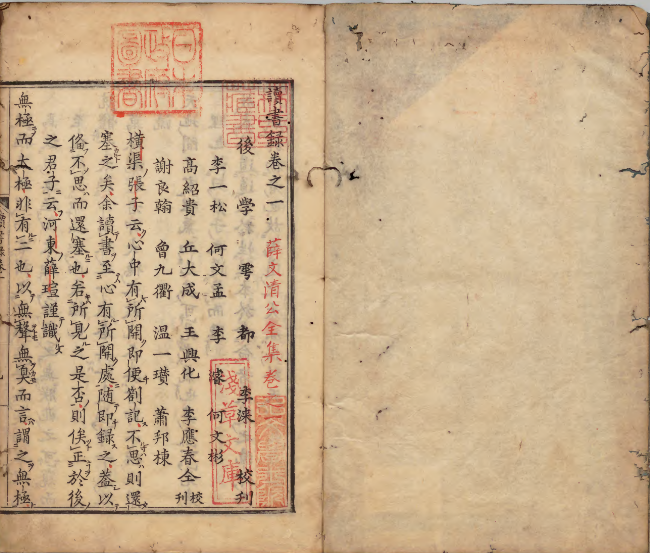 讀書録卷之一
薛文清公全集卷之
後學 雩都 李涞 校刊
李一松 何文孟 李濬 何文彬
高紹貴 丘大成 王興化 李應春仝校刊
謝良翰 曾九衢 温一瓚 蕭邦棟
橫渠張子云心中有所開即便劄記不思則還
塞之矣余讀書至心有所開處隨即録之蓋以
俻不思而還塞也若所見之是否則俟正於後
之君子云河東薛瑄謹識
無極而太極非有二也以無聲無臭而言謂之無極
日本
政府
圖書
淺草文庫